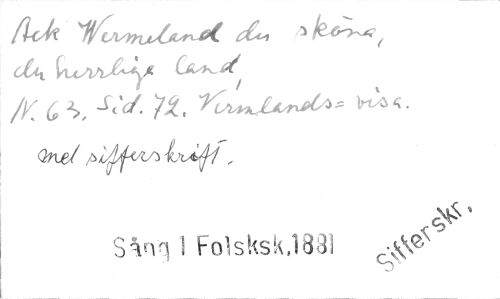 Ack Wermeland du sköna,
du herrliga land,
N. 63, Sid. 72. Vermlands=visa.
med sifferskrift.
Sång 1 Folsksk,1881
Sifferskr,